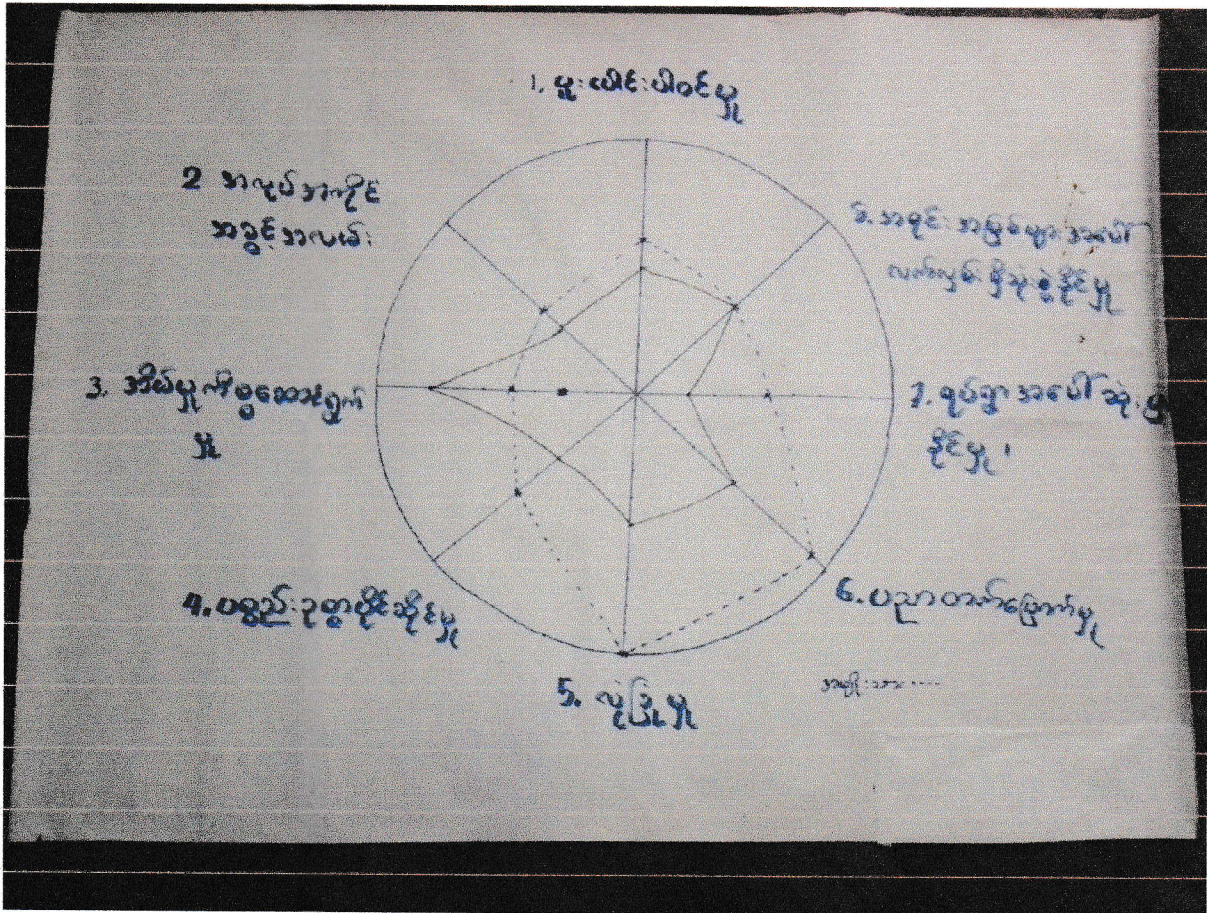 1. ပူးပေါင်းပါဝင်မှု
2 အလုပ်အကိုင်
အခွင့်အလမ်း
3. အိမ်မှုကိစ္စဆောင်ရွက်
မှု
4. ပစ္စည်းဥစ္စာပိုင်ဆိုင်မှု
5. လုံခြုံမှု
6. ပညာတတ်မြောက်မှု
အမျိုးသား
7. ရပ်ရွာအပေါ်
နိုင်မှု
8. အရင်းအမြစ်များအပေါ်
လက်လှမ်း